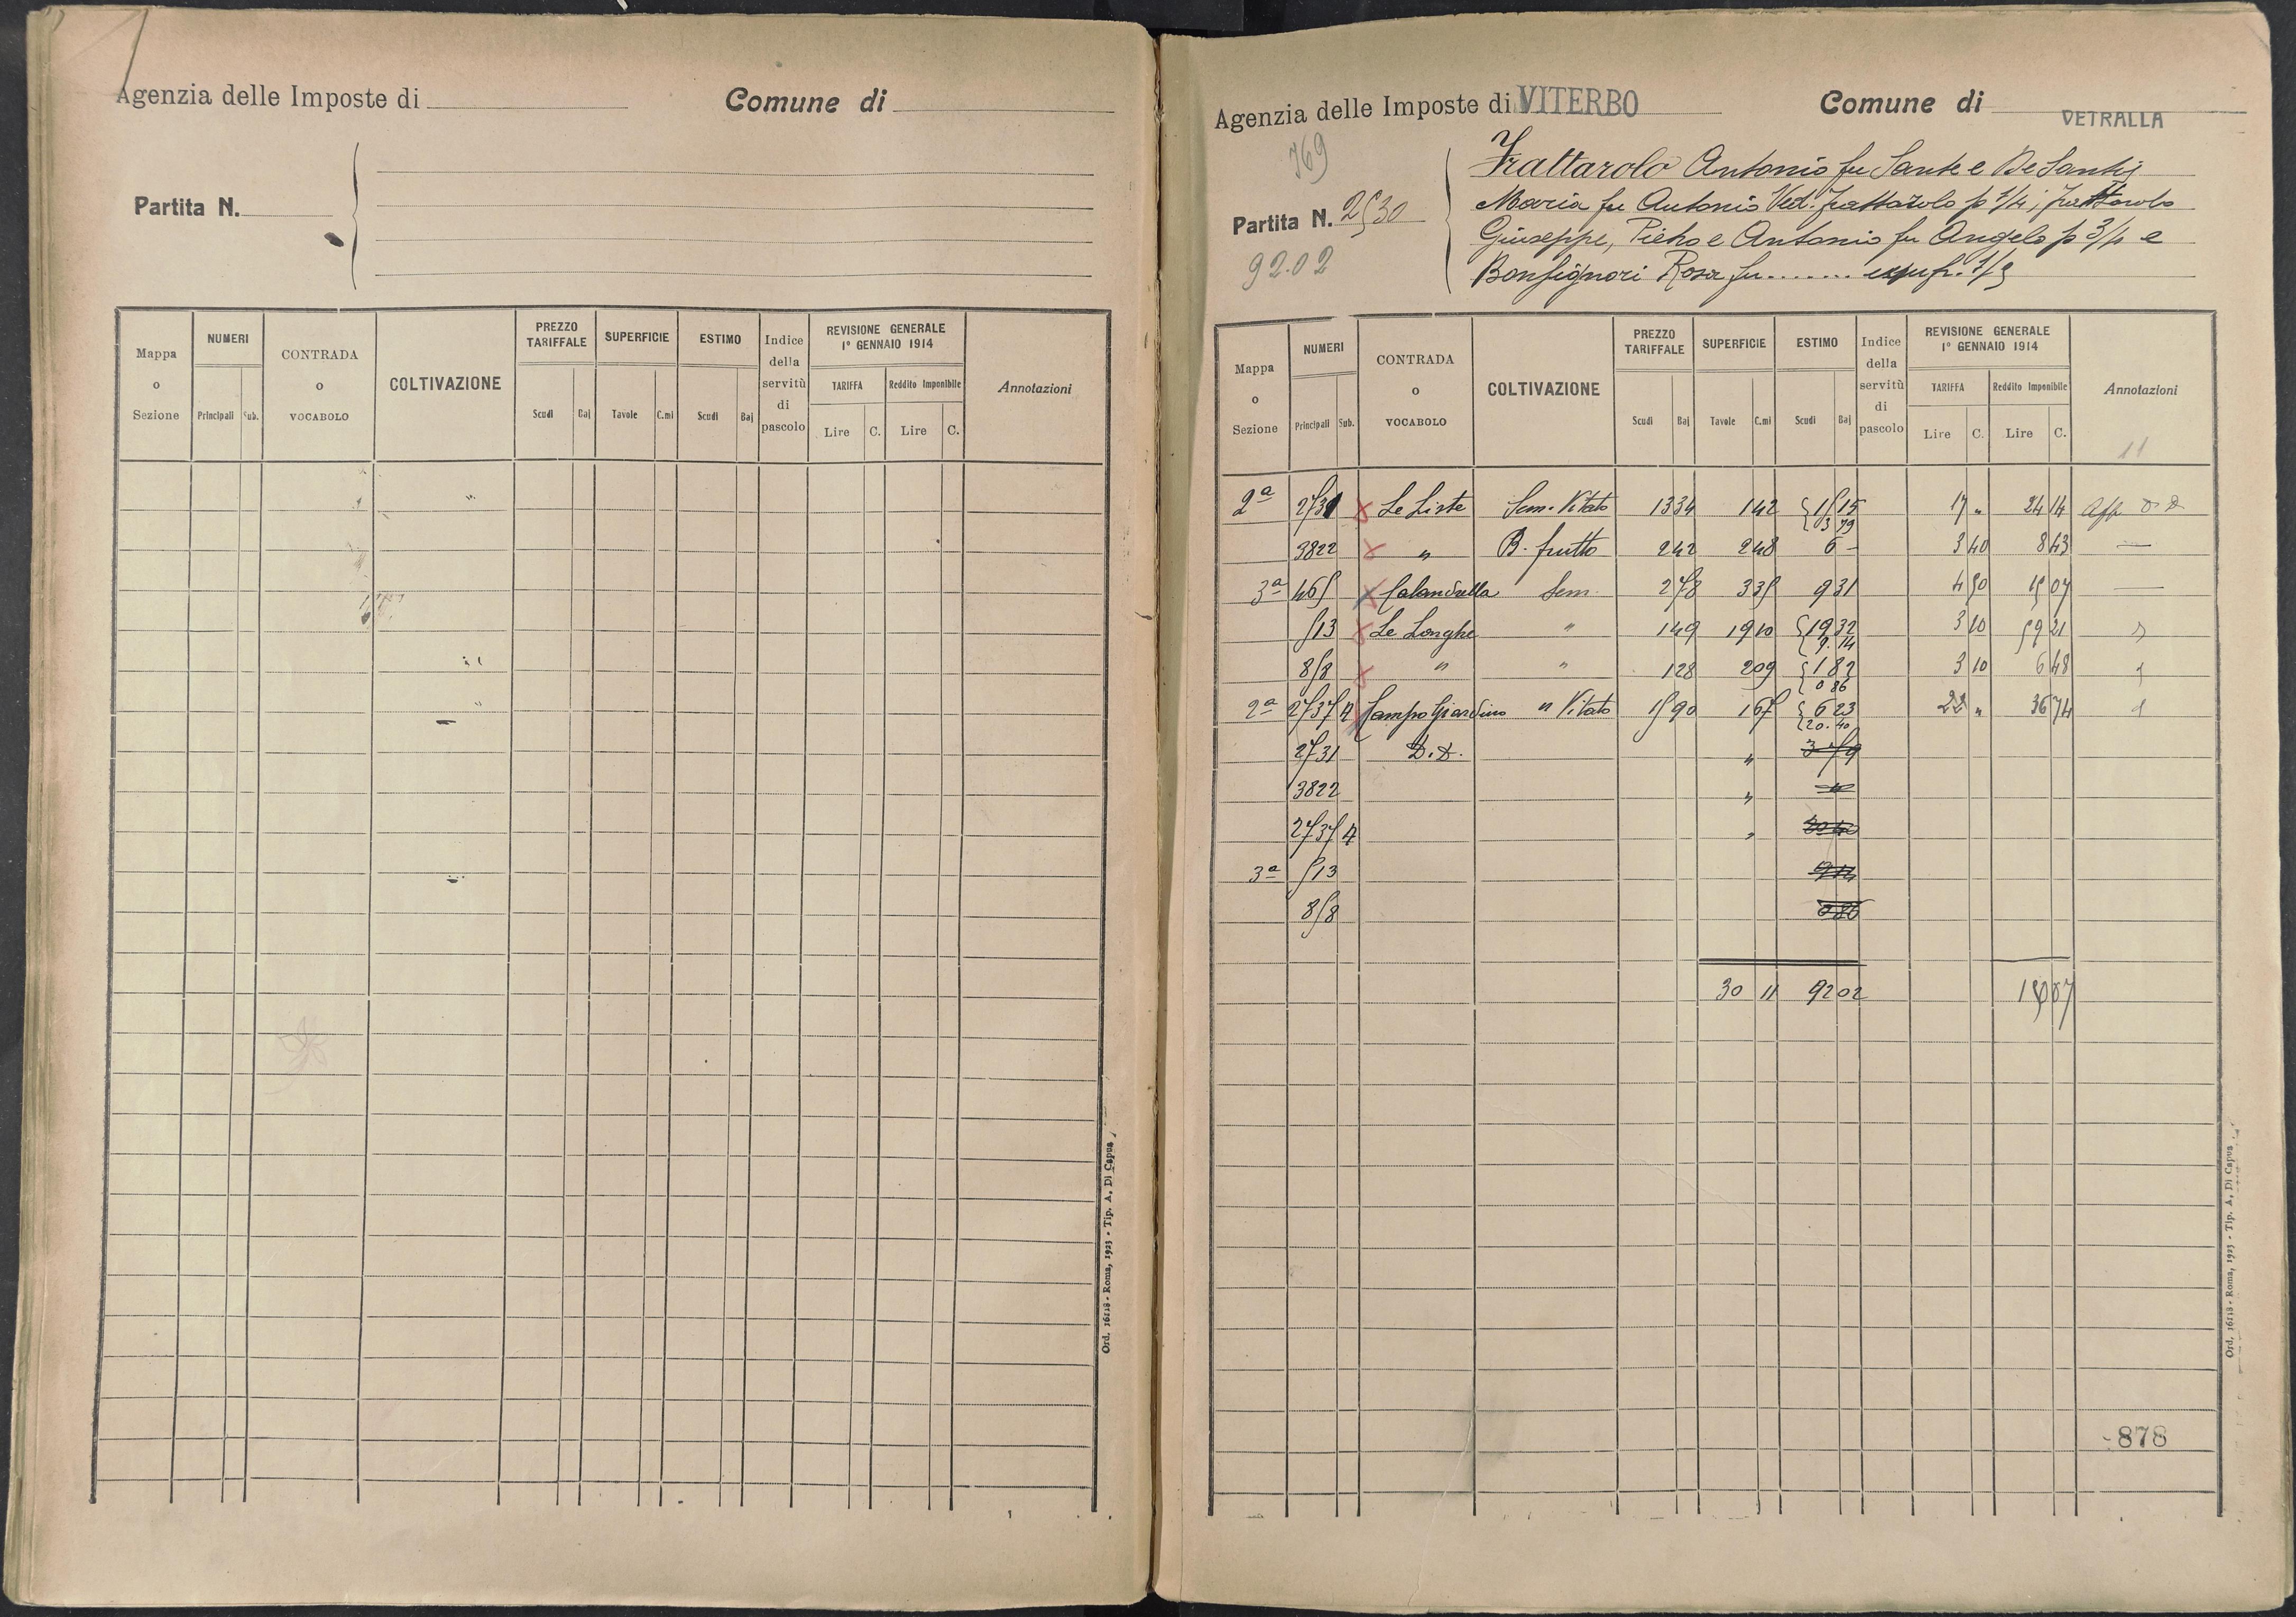 Agenzia delle Imposte di
Comune di
Partita N.
Mappa o Sezione
NUMERI
Principali Sub.
CONTRADA o VOCABOLO
COLTIVAZIONE
PREZZO TARIFFALE
Scudi Baj
SUPERFICIE
Tavole C.mi
ESTIMO
Scudi Baj
Indice della servitù di pascolo
REVISIONE GENERALE 1° GENNAIO 1914
TARIFFA
Lire C.
Reddito Imponibile
Lire C.
Annotazioni
Ord. 16118 - Roma, 1923 - Tip. A. Di Capua
Agenzia delle Imposte di VITERBO
Comune di VETRALLA
769
Partita N. 2530
92.02
Frattarolo Antonio fu Sante e De Santis
Maria fu Antonio Ved. Frattarolo p 1/4; Frattarolo
Giuseppe, Pietro e Antonio fu Angelo p 3/4 e
Bonsignori Rosa fu ........ usufr. 1/3
Mappa o Sezione
NUMERI
Principali Sub.
CONTRADA o VOCABOLO
COLTIVAZIONE
PREZZO TARIFFALE
Scudi Baj
SUPERFICIE
Tavole C.mi
ESTIMO
Scudi Baj
Indice della servitù di pascolo
REVISIONE GENERALE 1° GENNAIO 1914
TARIFFA
Lire C.
Reddito Imponibile
Lire C.
Annotazioni
11
2ª 2531 x Le Liste Sem. Vitato 13 34 1 42 { 15 15 17 " 24 14
{ 3 79
3822 x " B. frutto 2 42 2 48 6 - 3 40 8 43 —
3ª 465 x Calandrella Sem. 2 78 3 35 9 31 4 50 15 07 —
513 x Le Longhe " 1 49 19 10 { 19 32 3 10 59 21 "
{ 9.14
858 x " " 1 28 2 09 { 1 82 3 10 6 48 "
{ 0 86
2ª 2535 4 Campo Giardino " Vitato 15 90 1 67 { 6 23 22 " 36 74 "
{ 20.40
2531 D.D. " 3 79
3822 "
2535 4 " 20 40
3ª 513 9 14
858 0 86
30 11 92 02 150 07
878
Ord. 16118 - Roma, 1923 - Tip. A. Di Capua